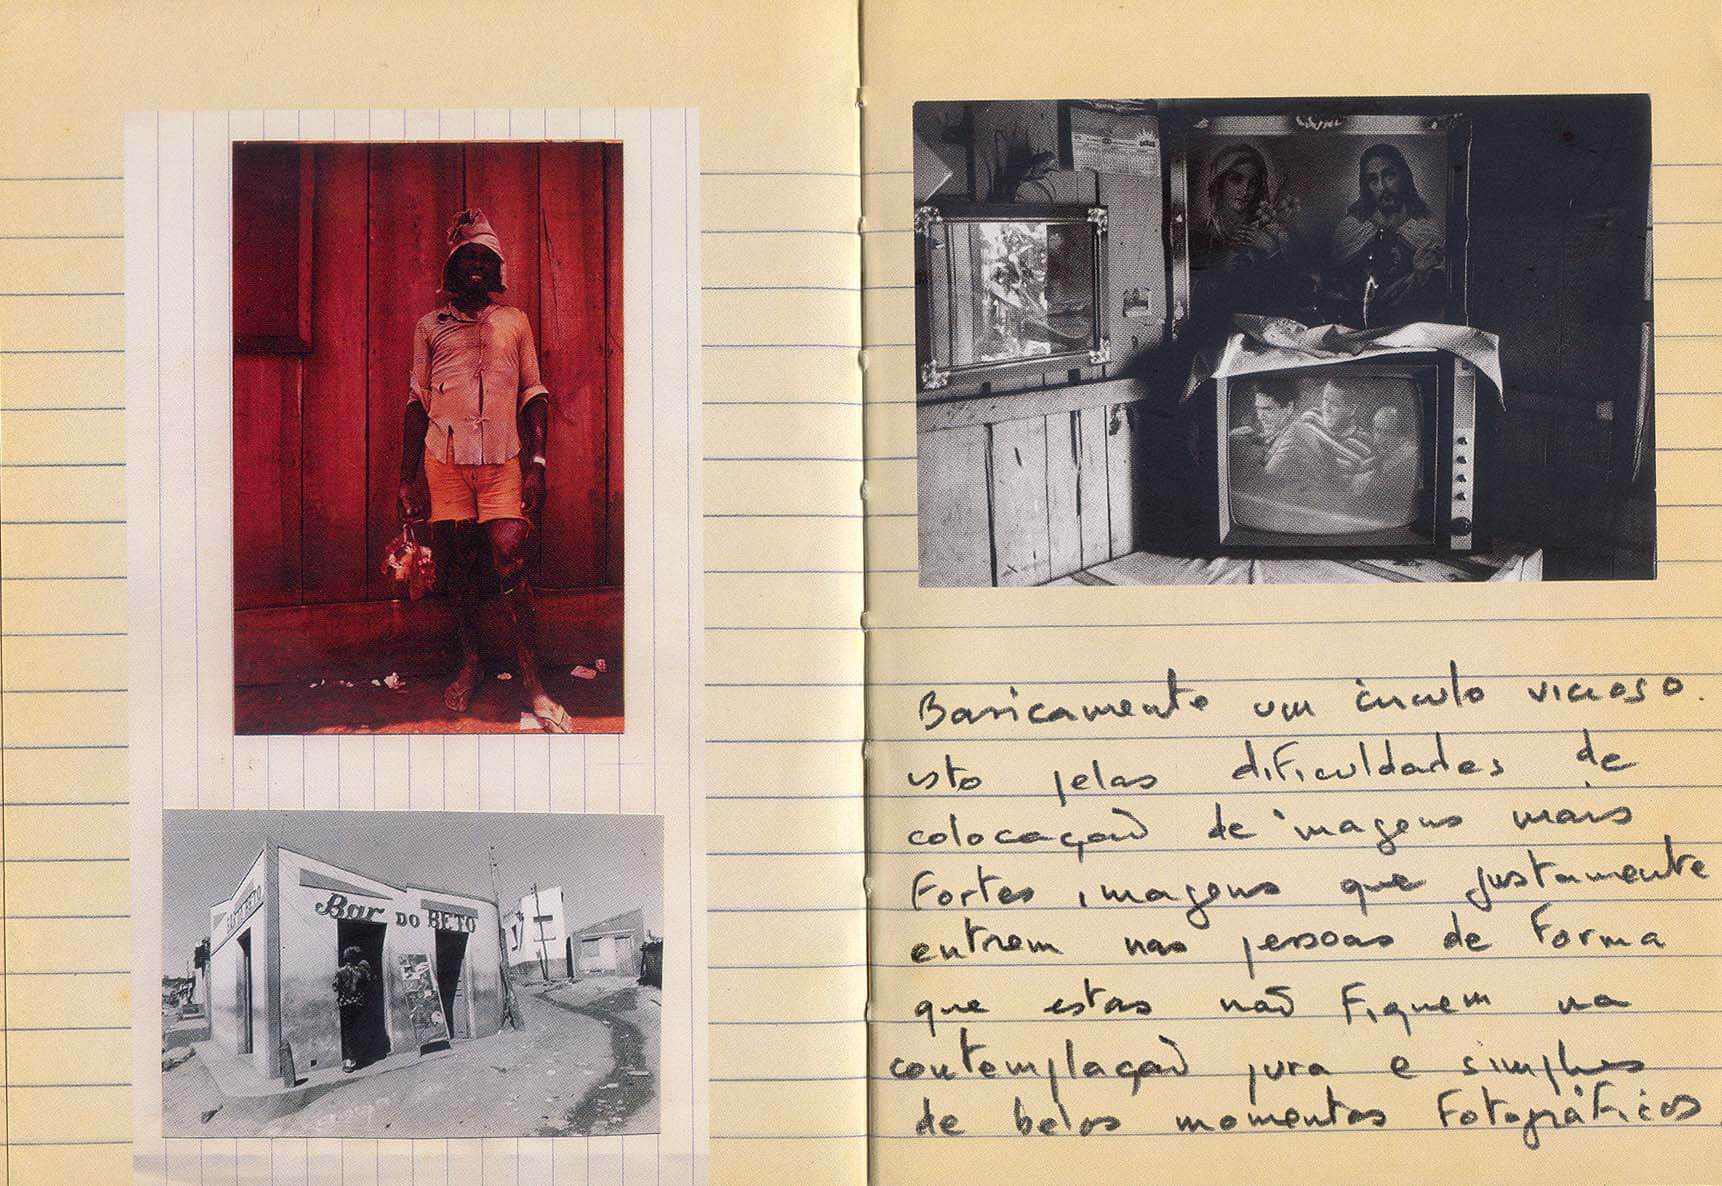 BAR DO BETO
Bar DO BETO
Basicamente um circulo vicioso.
isto pelas dificuldades de
colocação de imagens mais
Fortes, imagens que justamente
entrem nas pessoas de Forma
que estas não Fiquem na
contemplação pura e simples
de belos momentos Fotográficos